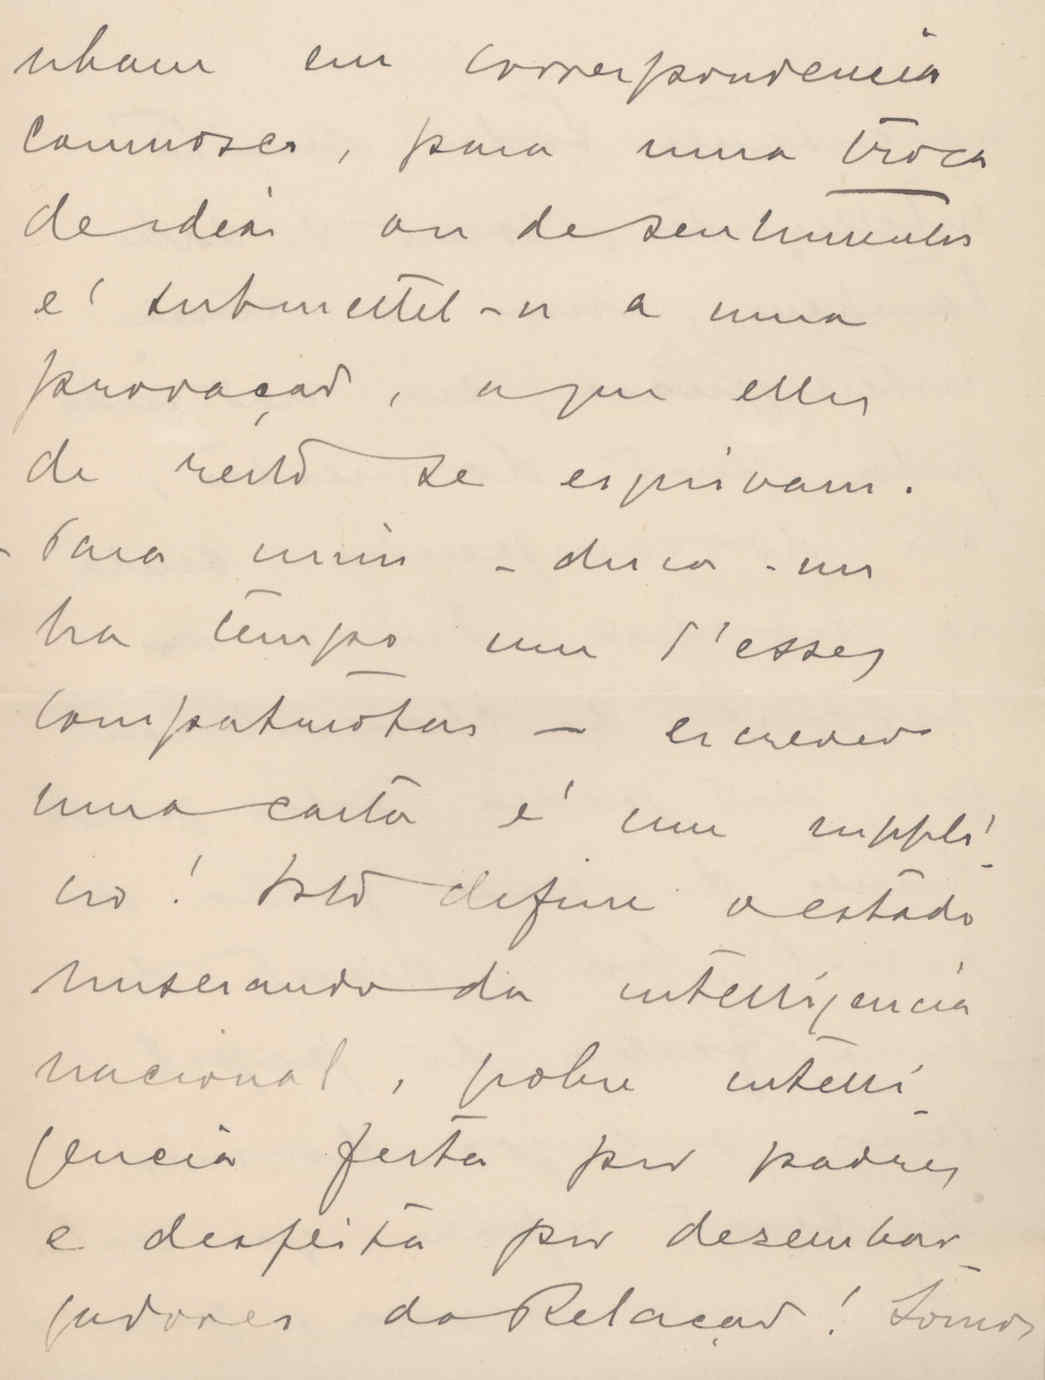 nham em correspondencia
comnosco, para uma troca
de ideias ou de sentimentos
é submettel-os a uma
provação, a que elles
de resto se esquivam.
- Para mim - dizia-me
ha tempo um d'esses
compatriotas - escrever
uma carta é um suppli-
cio! Isto define o estado
miserando da intelligencia
nacional, pobre intelli-
gencia feita por padres
e desfeita por desembar
gadores da Relação! Somos